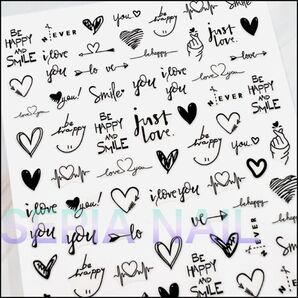 BE
HAPPY
AND
SMILE
you
be
happy
EVER
I love
you
you!
lo ve
be happy
Smile
you
just
love.
I love
you
BE
HAPPY
AND
SMILE
you
EVER
be
happy
love you
just
love.
be
happy
BE
HAPPY
AND
SMILE
love you
you!
I love you
be happy
SEPIA NAIL
I love
you
you
ve
EVER
be
happy
I love you